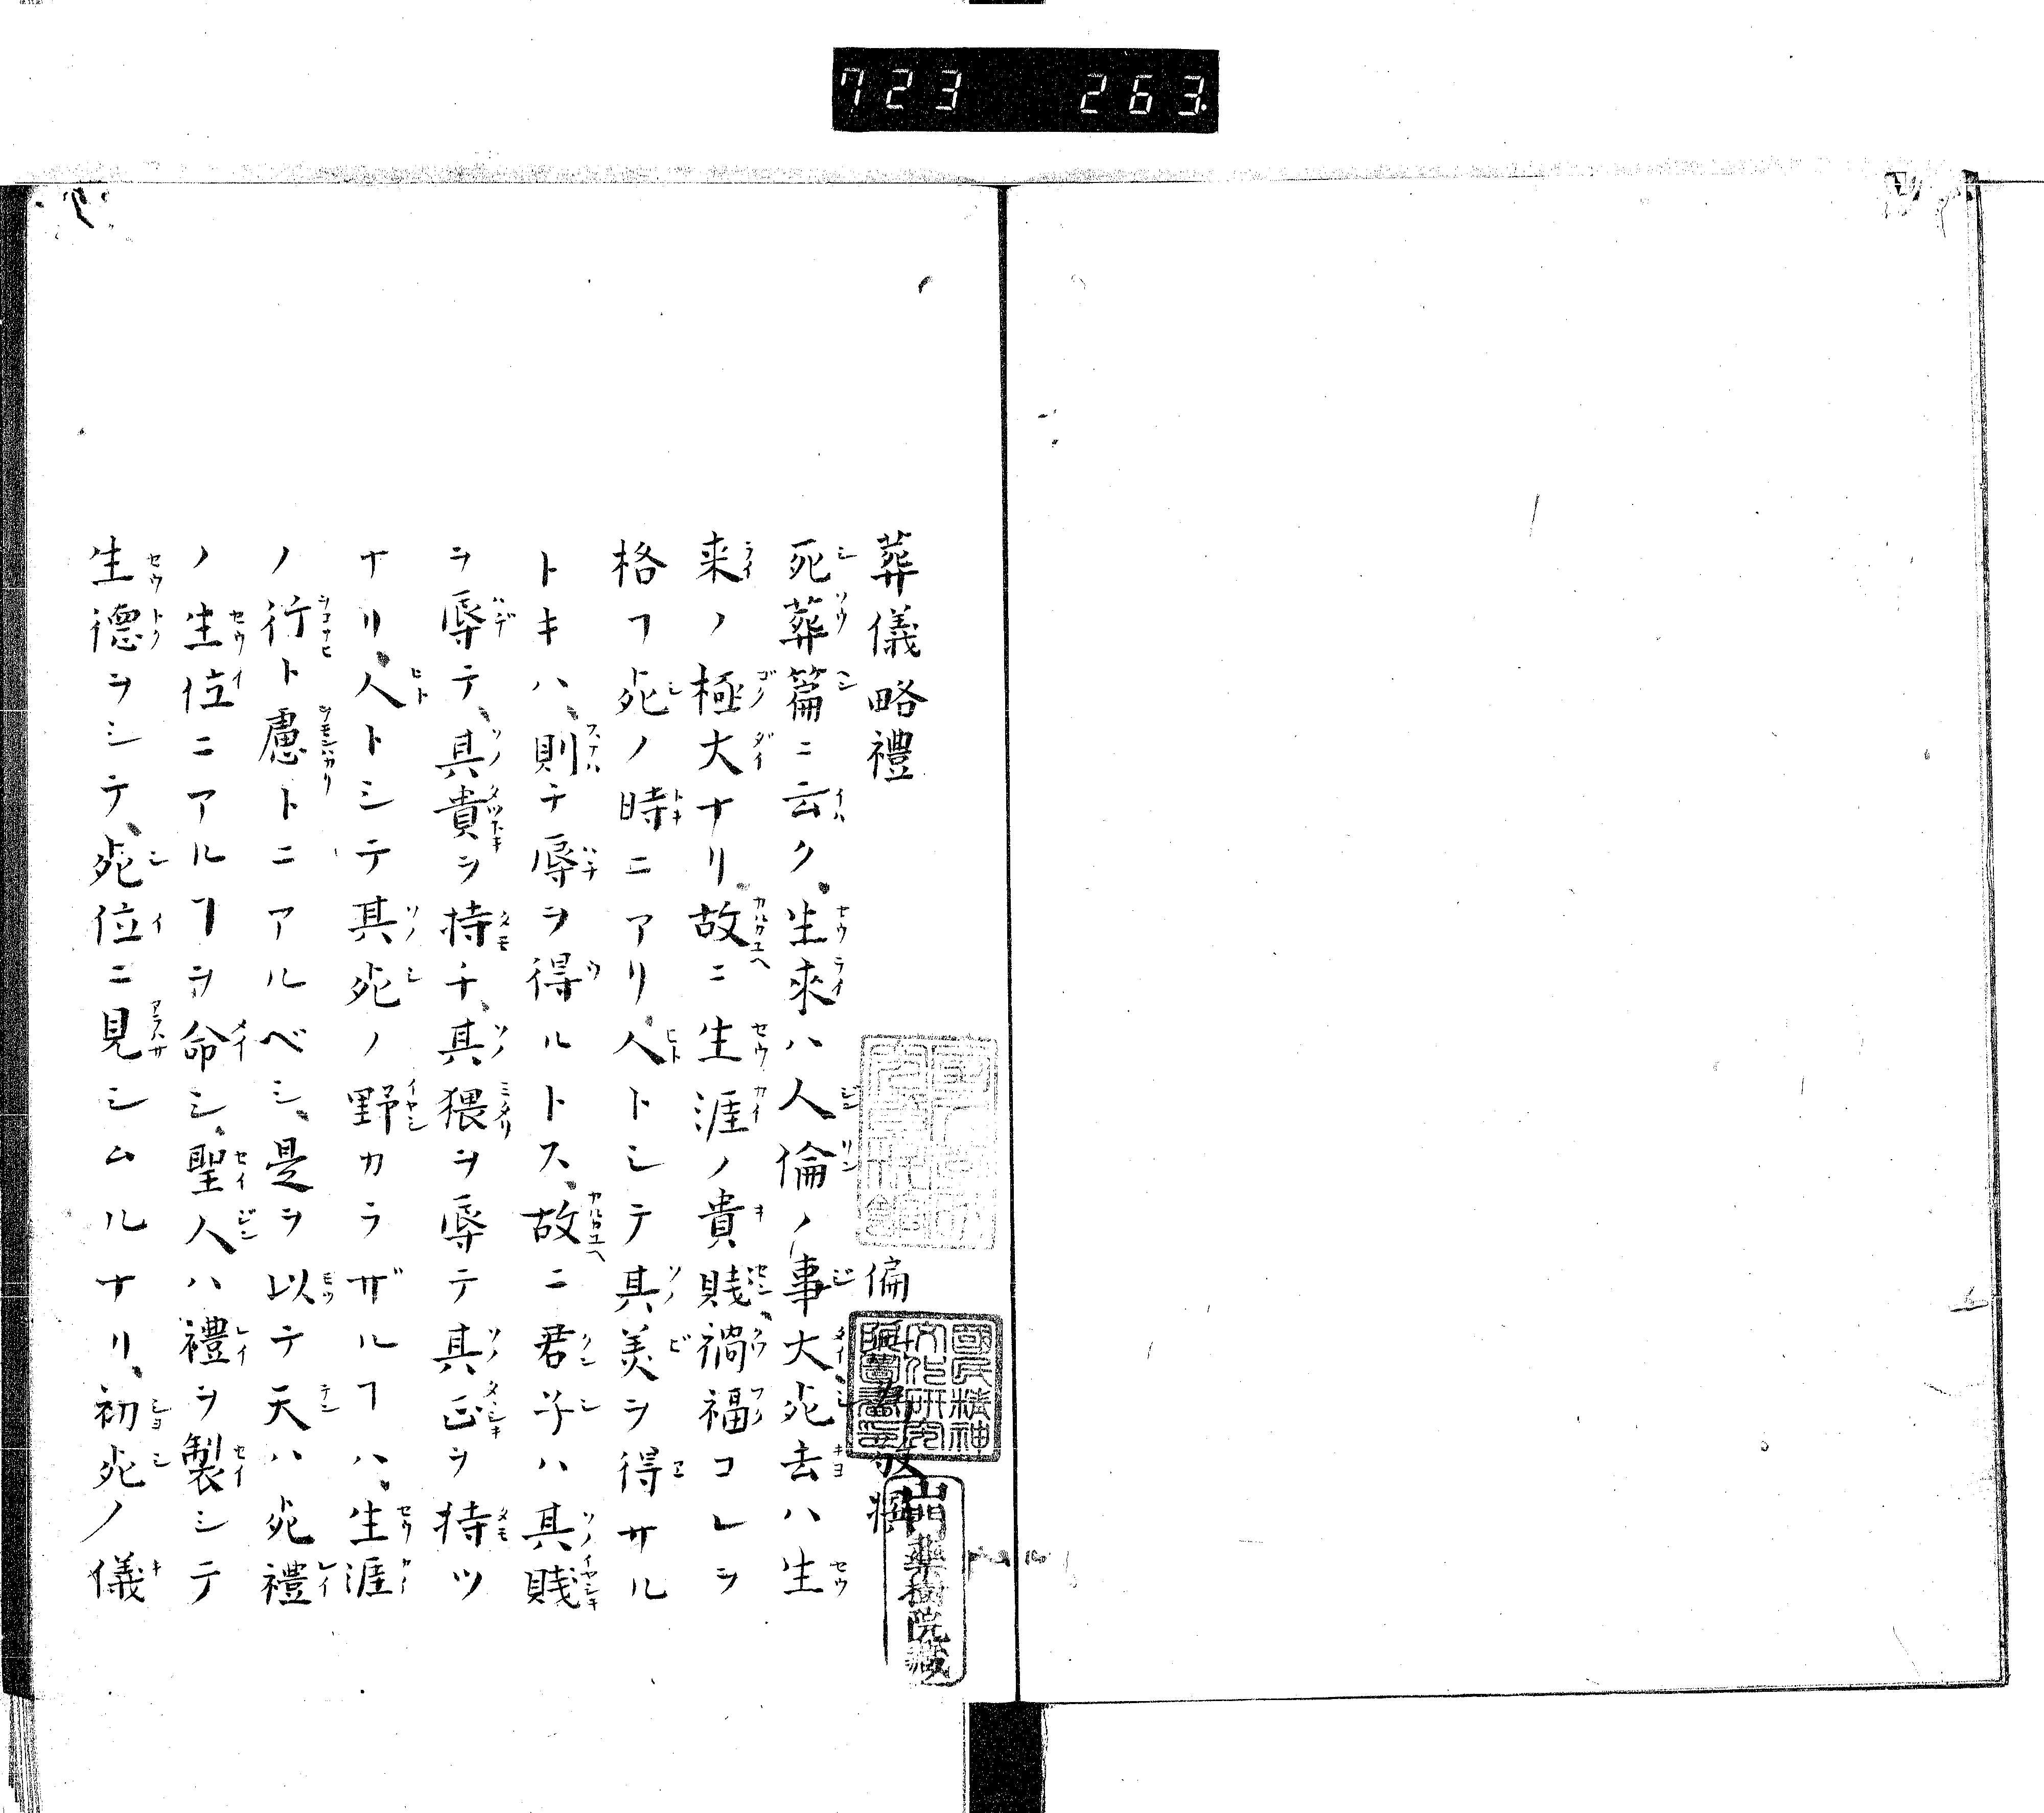 723 263
葬儀略禮
偏
撰
國民精神文化研究所圖書之印
山門藥樹院藏
死葬篇ニ云ク、生來ハ人倫ノ事大、死去ハ生
来ノ極大ナリ、故ニ生涯ノ貴賎、禍福コレヲ
格フ死ノ時ニアリ、人トシテ其美ヲ得サル
トキハ、則チ辱ヲ得ルトス、故ニ君子ハ其賎
ヲ辱テ、其貴ヲ持チ、其猥ヲ辱テ其正ヲ持ツ
ナリ、人トシテ其死ノ野カラザルヿハ、生涯
ノ行ト慮トニアルベシ、是ヲ以テ天ハ死禮
ノ生位ニアルヿヲ命シ、聖人ハ禮ヲ製シテ
生德ヲシテ、死位ニ見シムルナリ、初死ノ儀